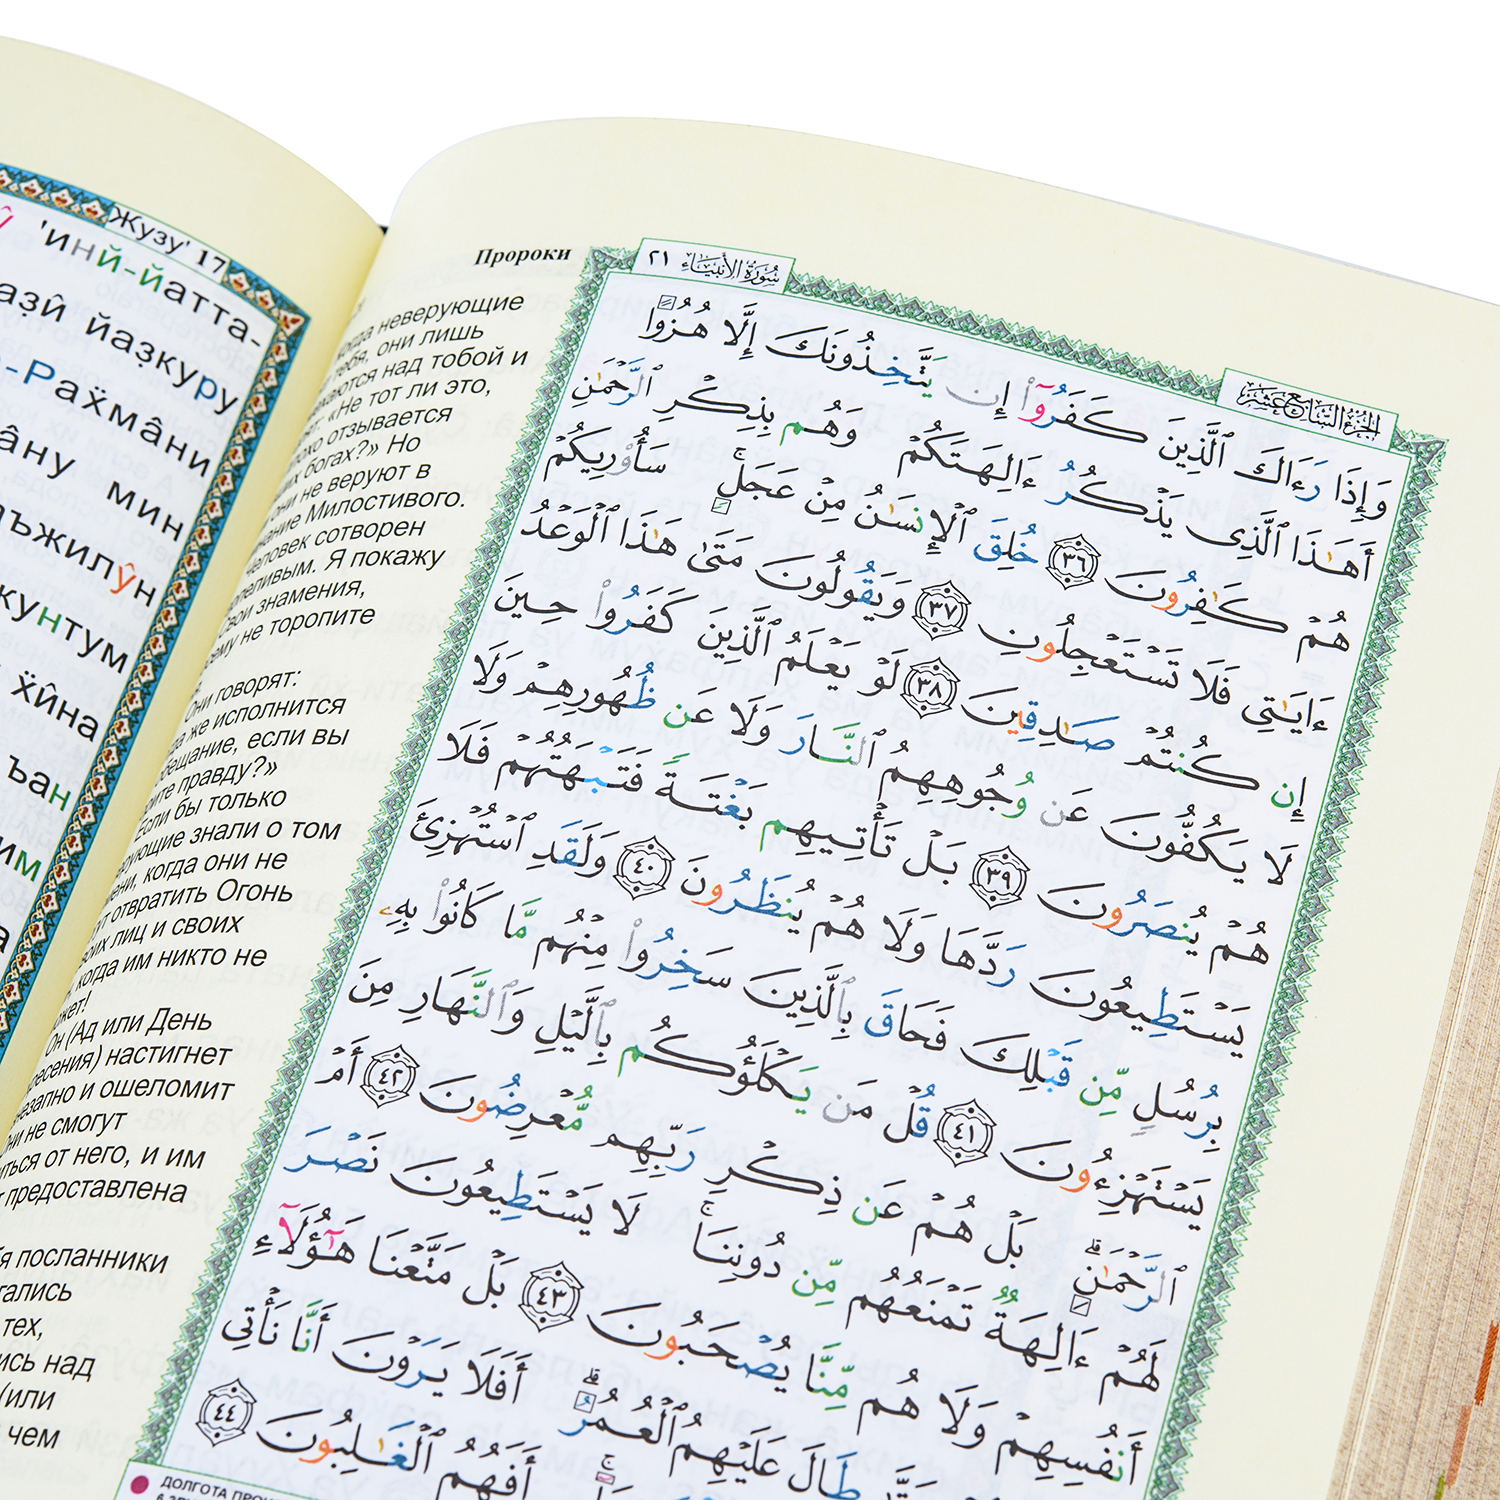 Жузу' 17
'инй-йатта-
аз̣й̂ йаз̣куру
-Рах̈ма̂ни
а̂ну мин
аъжилӯ̂н
кунтум
х̈й̂на
ъан
им
Пророки
неверующие
тебя, они лишь
над тобой и
«Не тот ли это,
отзывается
богах?» Но
они не веруют в
Милостивого.
сотворен
Я покажу
Свои знамения,
не торопите
Они говорят:
же исполнится
если вы
правду?»
Если бы только
знали о том
когда они не
отвратить Огонь
лиц и своих
когда им никто не
Он (Ад или День
настигнет
и ошеломит
Они не смогут
от него, и им
предоставлена
посланники
тех,
над
(или
чем
سُورَةُ الأَنبِيَاءِ ٢١
الجُزءُ السَّابِعَ عَشَرَ
وَإِذَا رَءَاكَ ٱلَّذِينَ كَفَرُوٓا۟ إِن يَتَّخِذُونَكَ إِلَّا هُزُوًا
أَهَٰذَا ٱلَّذِى يَذْكُرُ ءَالِهَتَكُمْ وَهُم بِذِكْرِ ٱلرَّحْمَٰنِ
هُمْ كَٰفِرُونَ ٣٦ خُلِقَ ٱلْإِنسَٰنُ مِنْ عَجَلٍ ۚ سَأُو۟رِيكُمْ
ءَايَٰتِى فَلَا تَسْتَعْجِلُونِ ٣٧ وَيَقُولُونَ مَتَىٰ هَٰذَا ٱلْوَعْدُ
إِن كُنتُمْ صَٰدِقِينَ ٣٨ لَوْ يَعْلَمُ ٱلَّذِينَ كَفَرُوا۟ حِينَ
لَا يَكُفُّونَ عَن وُجُوهِهِمُ ٱلنَّارَ وَلَا عَن ظُهُورِهِمْ وَلَا
هُمْ يُنصَرُونَ ٣٩ بَلْ تَأْتِيهِم بَغْتَةً فَتَبْهَتُهُمْ فَلَا
يَسْتَطِيعُونَ رَدَّهَا وَلَا هُمْ يُنظَرُونَ ٤٠ وَلَقَدِ ٱسْتُهْزِئَ
بِرُسُلٍ مِّن قَبْلِكَ فَحَاقَ بِٱلَّذِينَ سَخِرُوا۟ مِنْهُم مَّا كَانُوا۟ بِهِۦ
يَسْتَهْزِءُونَ ٤١ قُلْ مَن يَكْلَؤُكُم بِٱلَّيْلِ وَٱلنَّهَارِ مِنَ
ٱلرَّحْمَٰنِ ۗ بَلْ هُمْ عَن ذِكْرِ رَبِّهِم مُّعْرِضُونَ ٤٢ أَمْ
لَهُمْ ءَالِهَةٌ تَمْنَعُهُم مِّن دُونِنَا ۚ لَا يَسْتَطِيعُونَ نَصْرَ
أَنفُسِهِمْ وَلَا هُم مِّنَّا يُصْحَبُونَ ٤٣ بَلْ مَتَّعْنَا هَٰٓؤُلَآءِ
طَالَ عَلَيْهِمُ ٱلْعُمُرُ ۗ أَفَلَا يَرَوْنَ أَنَّا نَأْتِى
أَفَهُمُ ٱلْغَٰلِبُونَ ٤٤
ДОЛГОТА